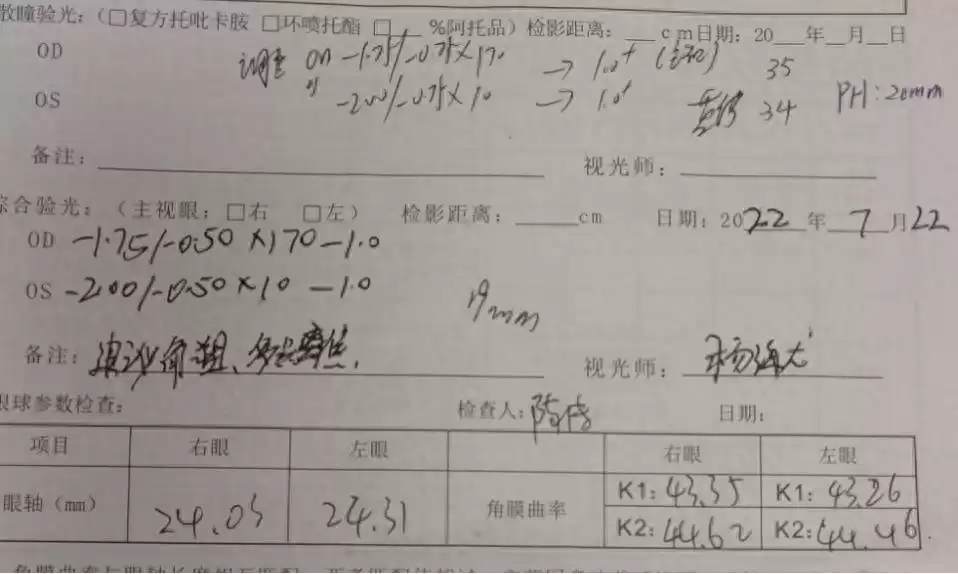 散瞳验光:(□复方托吡卡胺 □环喷托酯 □___%阿托品)检影距离:___cm日期:20__年__月__日
OD 调整 OD -1.75/-0.75×170 → 1.0+ 35
OS -2.00/-0.75×10 → 1.0+ 34 PH:20mm
备注: 视光师:
综合验光:(主视眼:□右 □左) 检影距离:____cm 日期:2022年7月22
OD -1.75/-0.50×170-1.0
OS -2.00/-0.50×10-1.0 19mm
备注: 视光师:
眼球参数检查: 检查人: 日期:
项目 右眼 左眼 右眼 左眼
眼轴(mm) 24.03 24.31 角膜曲率 K1:43.35 K1:43.26
K2:44.62 K2:44.46